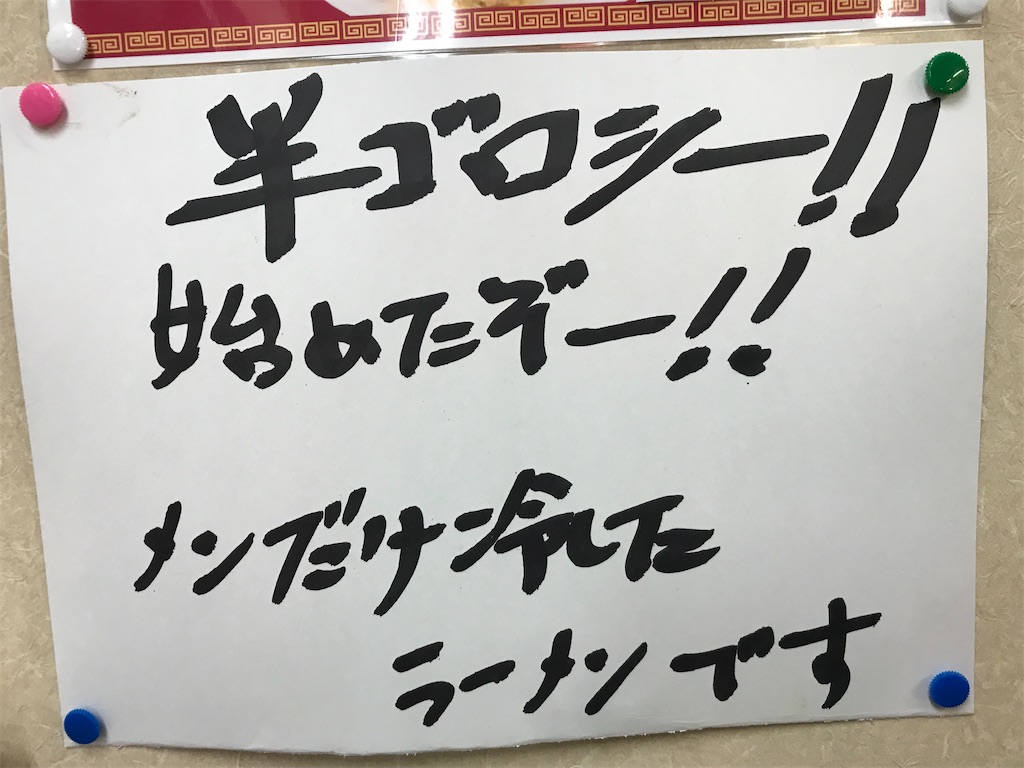 半ゴロシー!!
始めたぞー!!
メンだけ冷した
ラーメンです